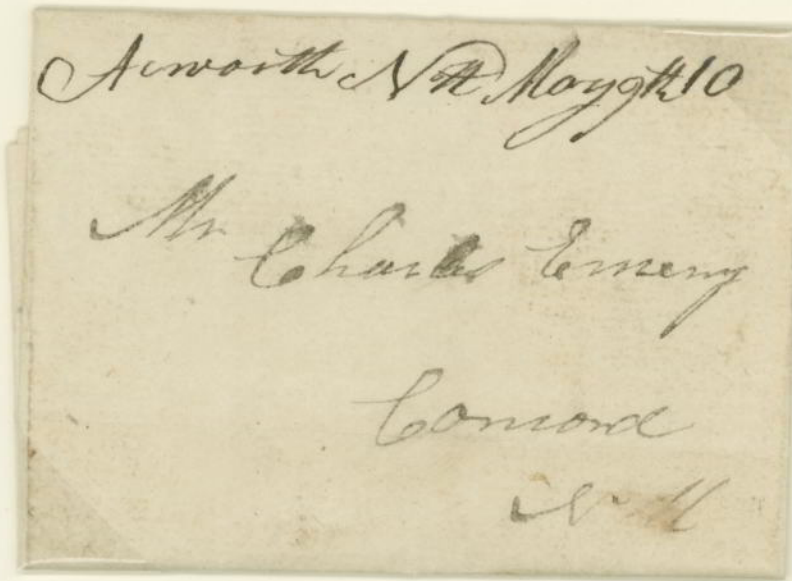 Acworth NH May 9th 10
Mr
Charles Emery
Concord
N. H